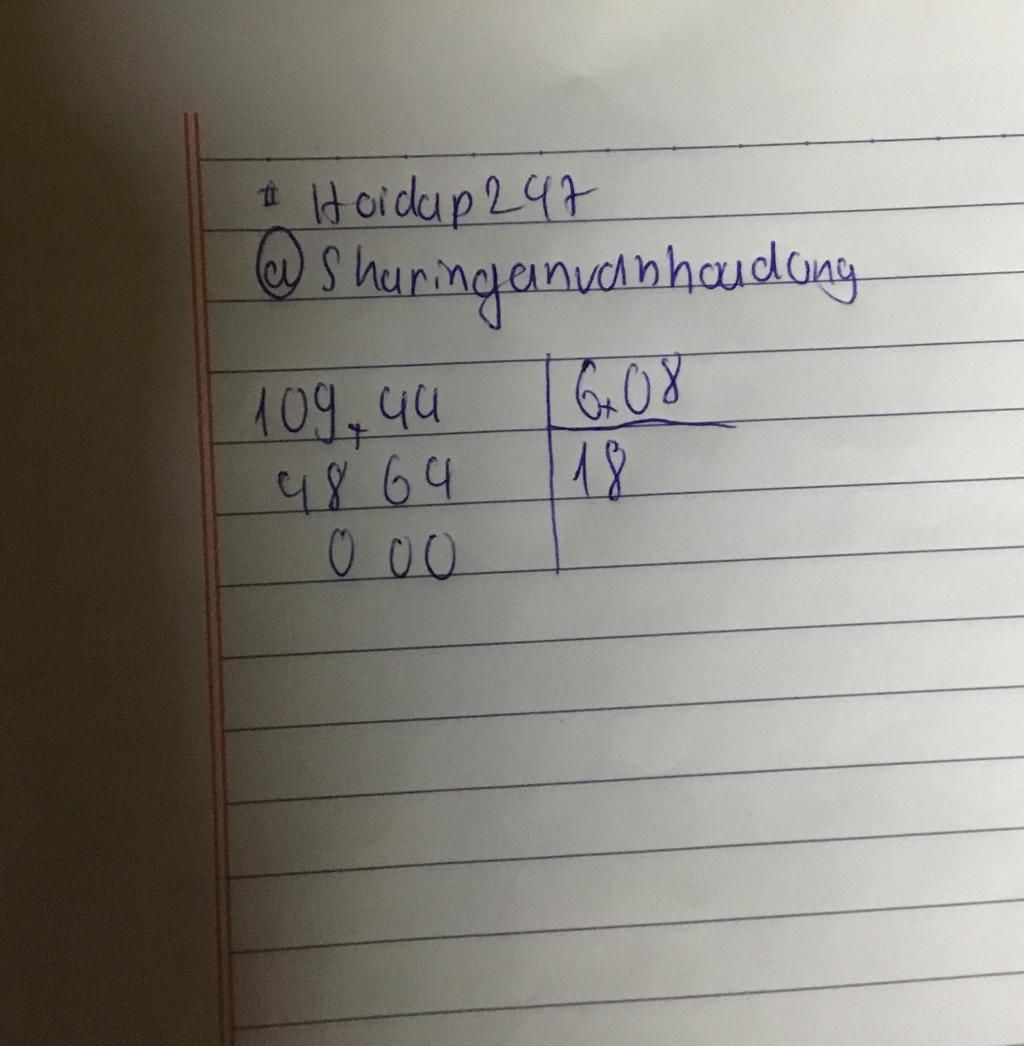 # Hoidap247
@Sharinganvanhoadong
109,44 6,08
4864 18
000